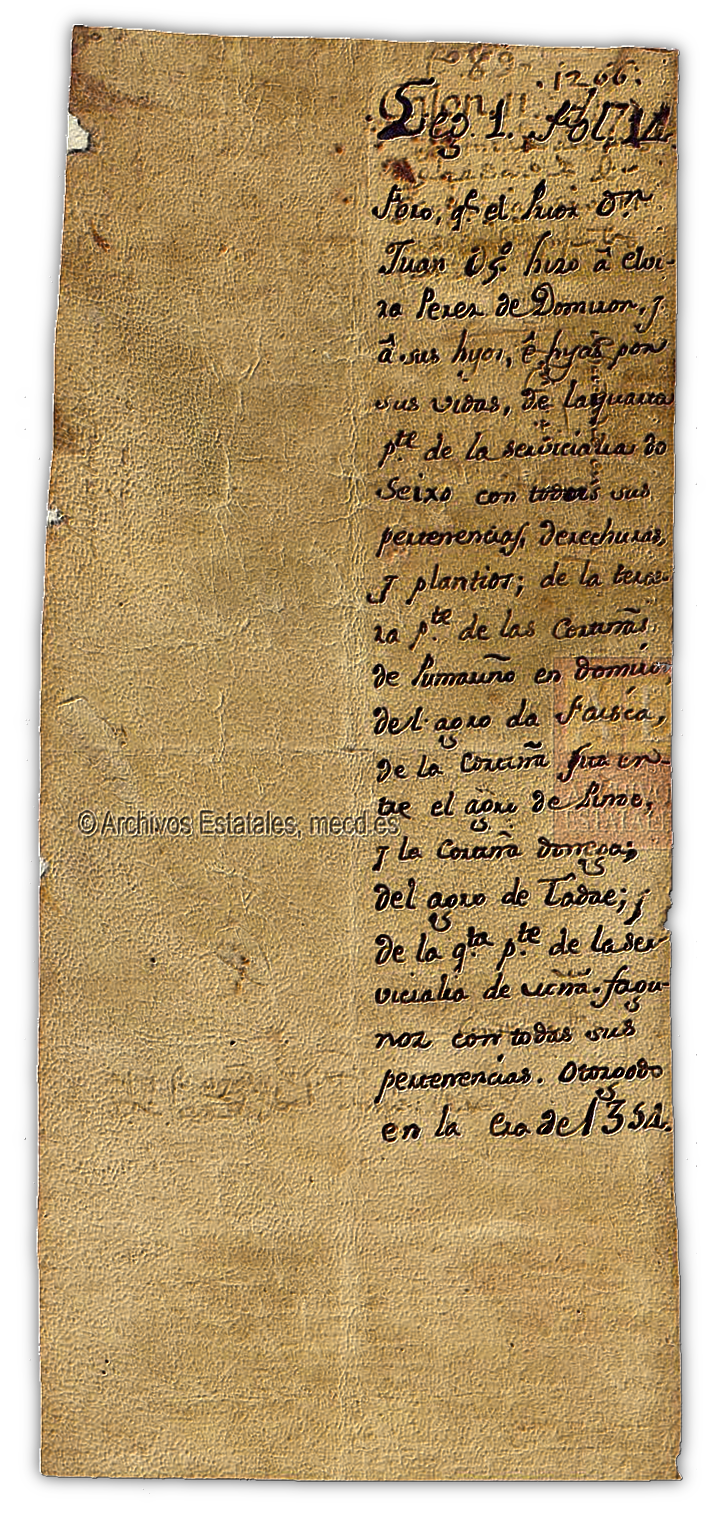 .1266.
Leg 1. fol. 14.
foro, q.e el Prior D.n
Juan Yg.o hizo â elvi-
ra Perez de Domiron, y
â sus hyos, ê hyas por
sus vidas, de la quarta
p.te de la servicialia do
Seixo con todas sus
pertenencias, derechuras,
y plantios; de la terce-
ra p.te de las Cortiñas
de Pumariño en domiro,
del agro da
de la Cortiña sita en-
tre el agro de Pume,
y la Cortiña donega;
del agro de Tadae; y
de la q.ta p.te de la ser
vicialia de fagu-
noz con todas sus
pertenencias. Otorgodo
en la Era de 1354.
©Archivos Estatales, mecd.es